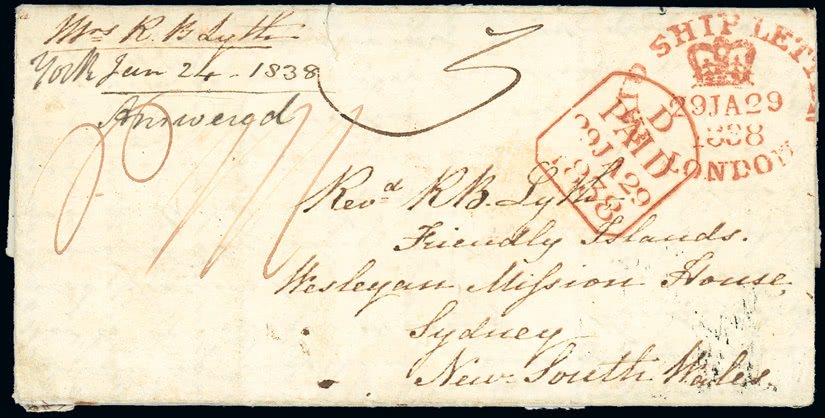 Mrs R. B Lyth
York Jan 24 - 1838
Answered
3
PAID SHIP LETTER
29JA29
1838
LONDON
D
PAID
29JA29
1838
Revd R B. Lyth
Friendly Islands.
Wesleyan Mission House,
Sydney
New South Wales.